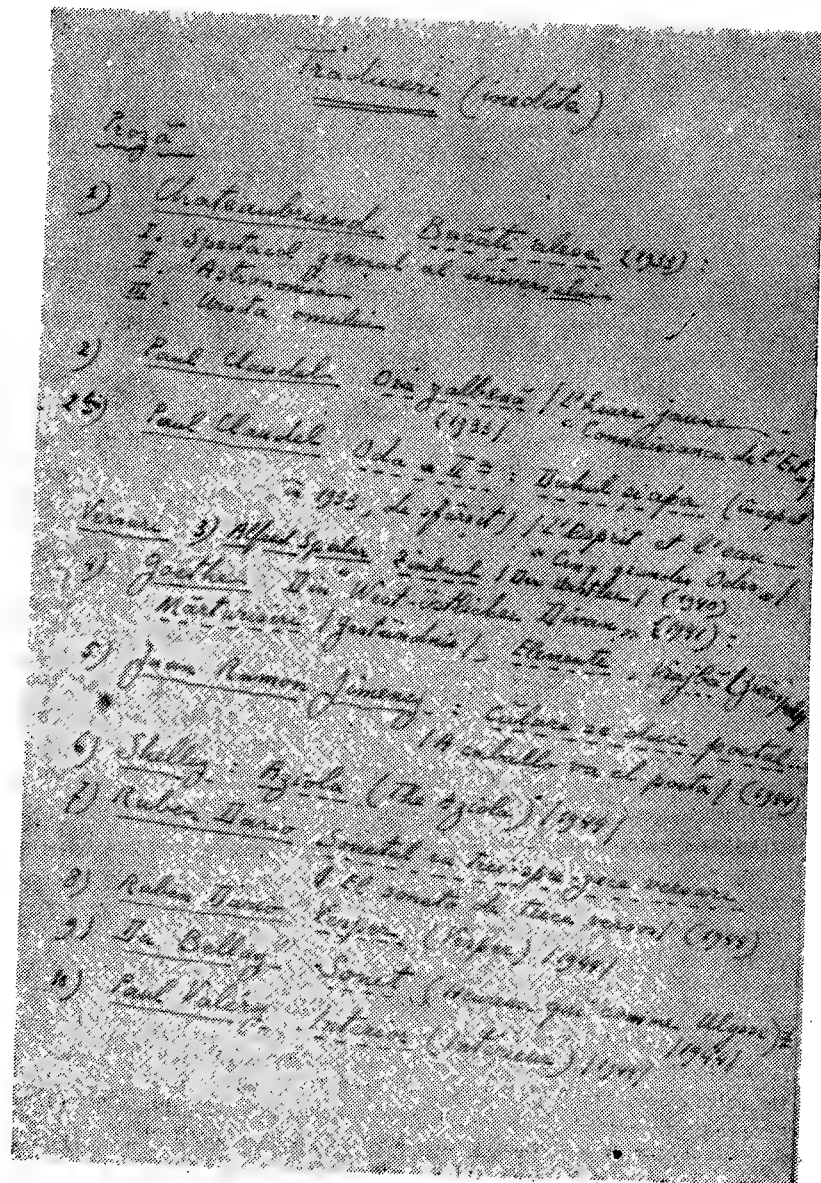 Traduceri (inedite)
Proză
1) Chateaubriand Bucăți alese (1933) :
I. Spectacol general al universului
II. Astronomia
III. Unitatea omului
2) Paul Claudel Ora galbenă / L'heure jaune —
(1933) "Connaissance de l'Est"
2 bis) Paul Claudel Oda a II-a : Duhul și apa (început
în 1933, de sfârșit) / L'Esprit et l'eau —
"Cinq grandes Odes" /
Versuri 3) Alfred (1940)
4) Goethe Din "West-Östlicher Divan" (1941) :
Mărturisire / Geständnis /, Elemente,
5) Juan Ramon Jimenez : Călare se duce poetul
/ A caballo va el poeta / (1944)
6) Shelley : Aziola (The Aziola) / 1944 /
7) Ruben Dario Sonetul cu treisprezece versuri
/ El soneto de trece versos / (1944)
8) Ruben Dario Vesper (Vesper) / 1944 /
9) Du Bellay Sonet (Heureux qui comme Ulysse)
/ 1944 /
10) Paul Valéry Interior (Intérieur) / 1944 /